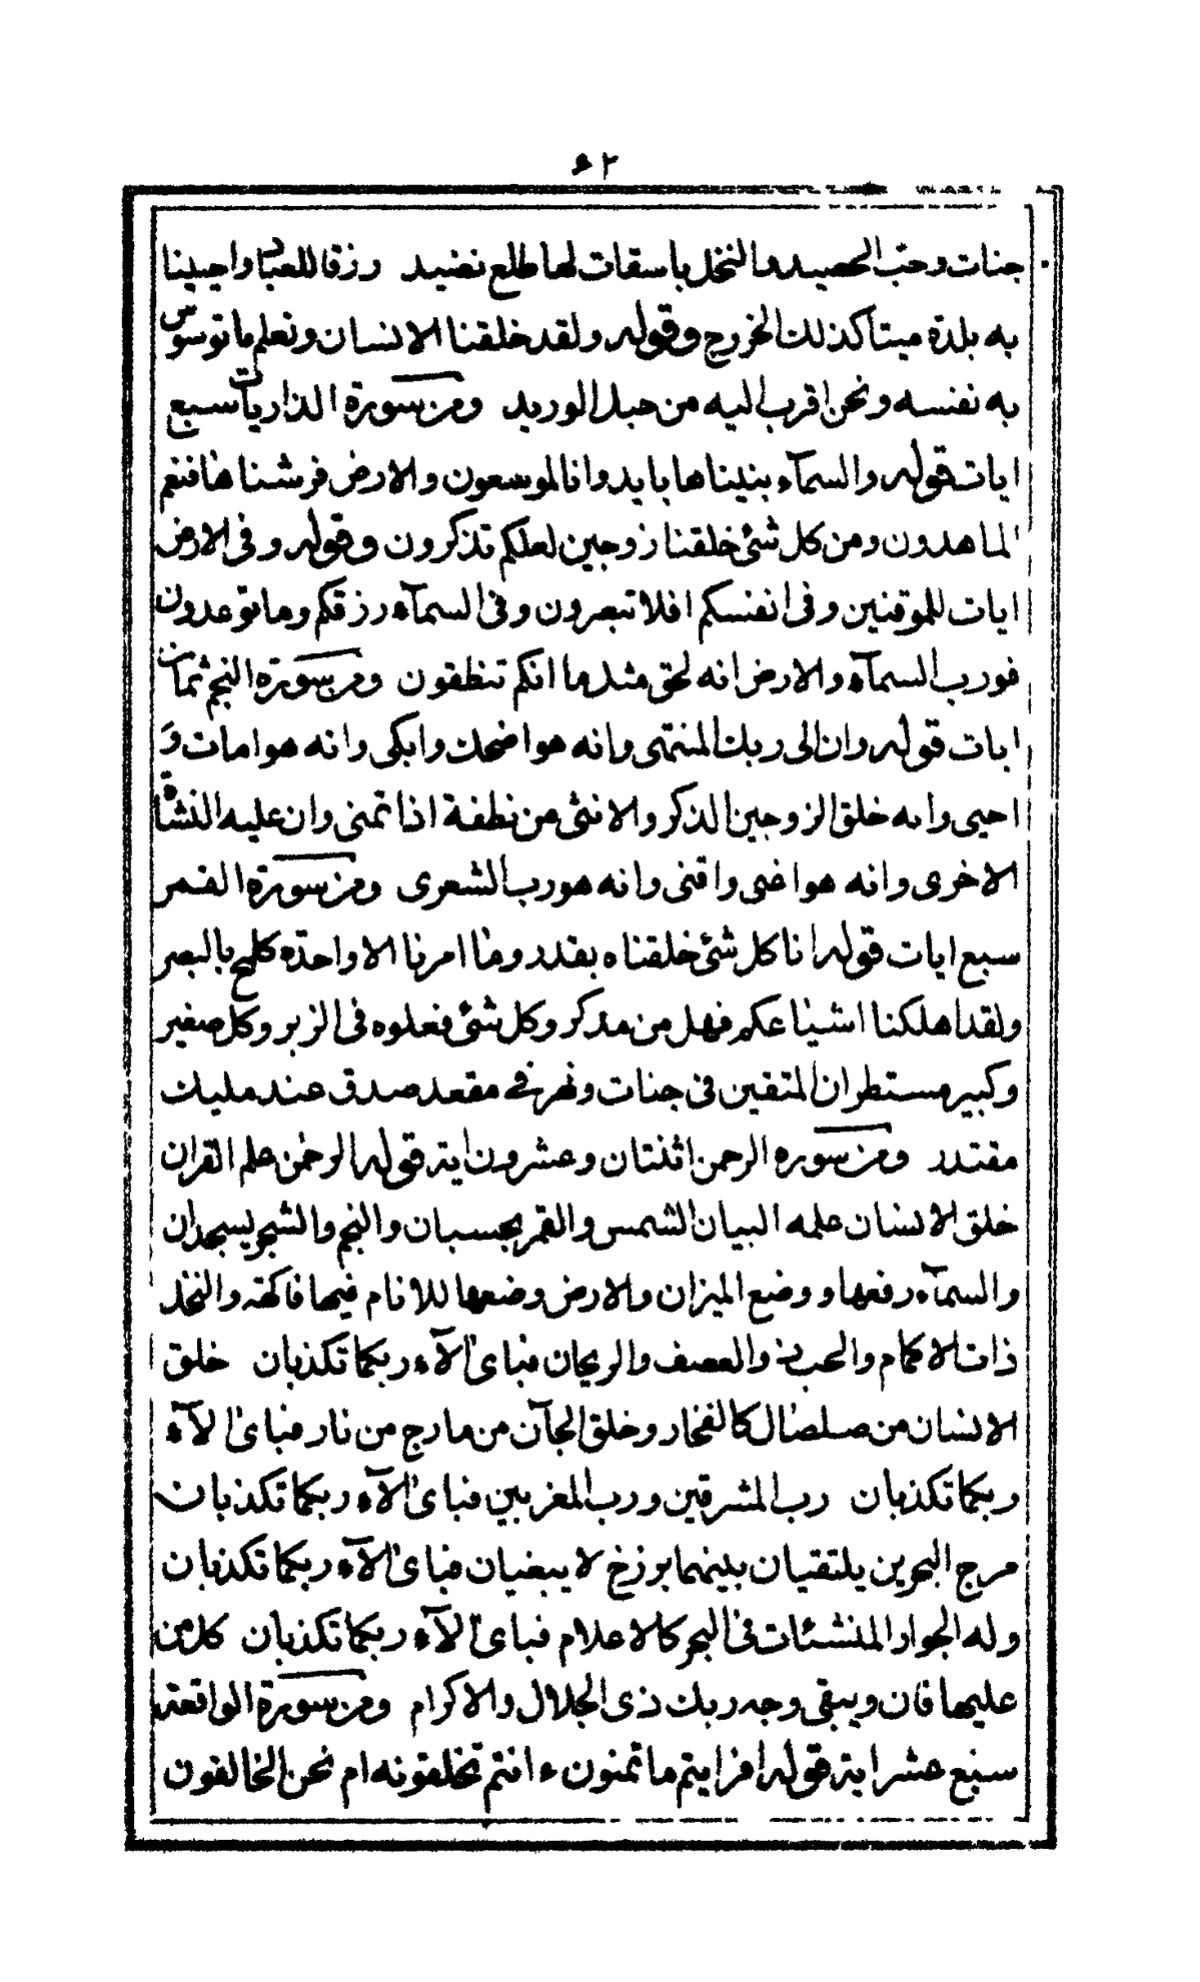 ٢٤
جنات وحب الحصيد والنخل باسقات لها طلع نضيد رزقا للعباد واحيينا
به بلدة ميتا كذلك الخروج وقوله ولقد خلقنا الانسان ونعلم ما توسوس
به نفسه ونحن اقرب اليه من حبل الوريد ومن سورة الذاريات سبع
ايات قوله والسمآء بنيناها بايد وانا لموسعون والارض فرشناها فنعم
الماهدون ومن كل شئ خلقنا زوجين لعلكم تذكرون وقوله وفى الارض
ايات للموقنين وفى انفسكم افلا تبصرون وفى السمآء رزقكم وما توعدون
فورب السمآء والارض انه لحق مثل ما انكم تنطقون ومن سورة النجم ثمان
ايات قوله وان الى ربك المنتهى وانه هو اضحك وابكى وانه هو امات و
احيى وانه خلق الزوجين الذكر والانثى من نطفة اذا تمنى وان عليه النشأة
الاخرى وانه هو اغنى واقنى وانه هو رب الشعرى ومن سورة القمر
سبع ايات قوله انا كل شئ خلقناه بقدر وما امرنا الا واحدة كلمح بالبصر
ولقد اهلكنا اشياعكم فهل من مدكر وكل شئ فعلوه فى الزبر وكل صغير
وكبير مستطر ان المتقين فى جنات ونهر فے مقعد صدق عند مليك
مقتدر ومن سوره الرحمن اثنتان وعشرون اية قوله الرحمن علم القران
خلق الانسان علمه البيان الشمس والقمر بحسبان والنجم والشجر يسجدان
والسمآء رفعها ووضع الميزان والارض وضعها للانام فيها فاكهة والنخل
ذات الاكمام والحب ذو العصف والريحان فباى الآء ربكما تكذبان خلق
الانسان من صلصال كالفخار وخلق الجآن من مارج من نار فباى الآء
ربكما تكذبان رب المشرقين ورب المغربين فباى الآء ربكما تكذبان
مرج البحرين يلتقيان بينهما برزخ لا يبغيان فباى الآء ربكما تكذبان
وله الجوار المنشئات فى البحر كالاعلام فباى الآء ربكما تكذبان كل من
عليها فان ويبقى وجه ربك ذى الجلال والاكرام ومن سورة الواقعة
سبع عشر اية قوله افرايتم ما تمنون ءانتم تخلقونه ام نحن الخالقون